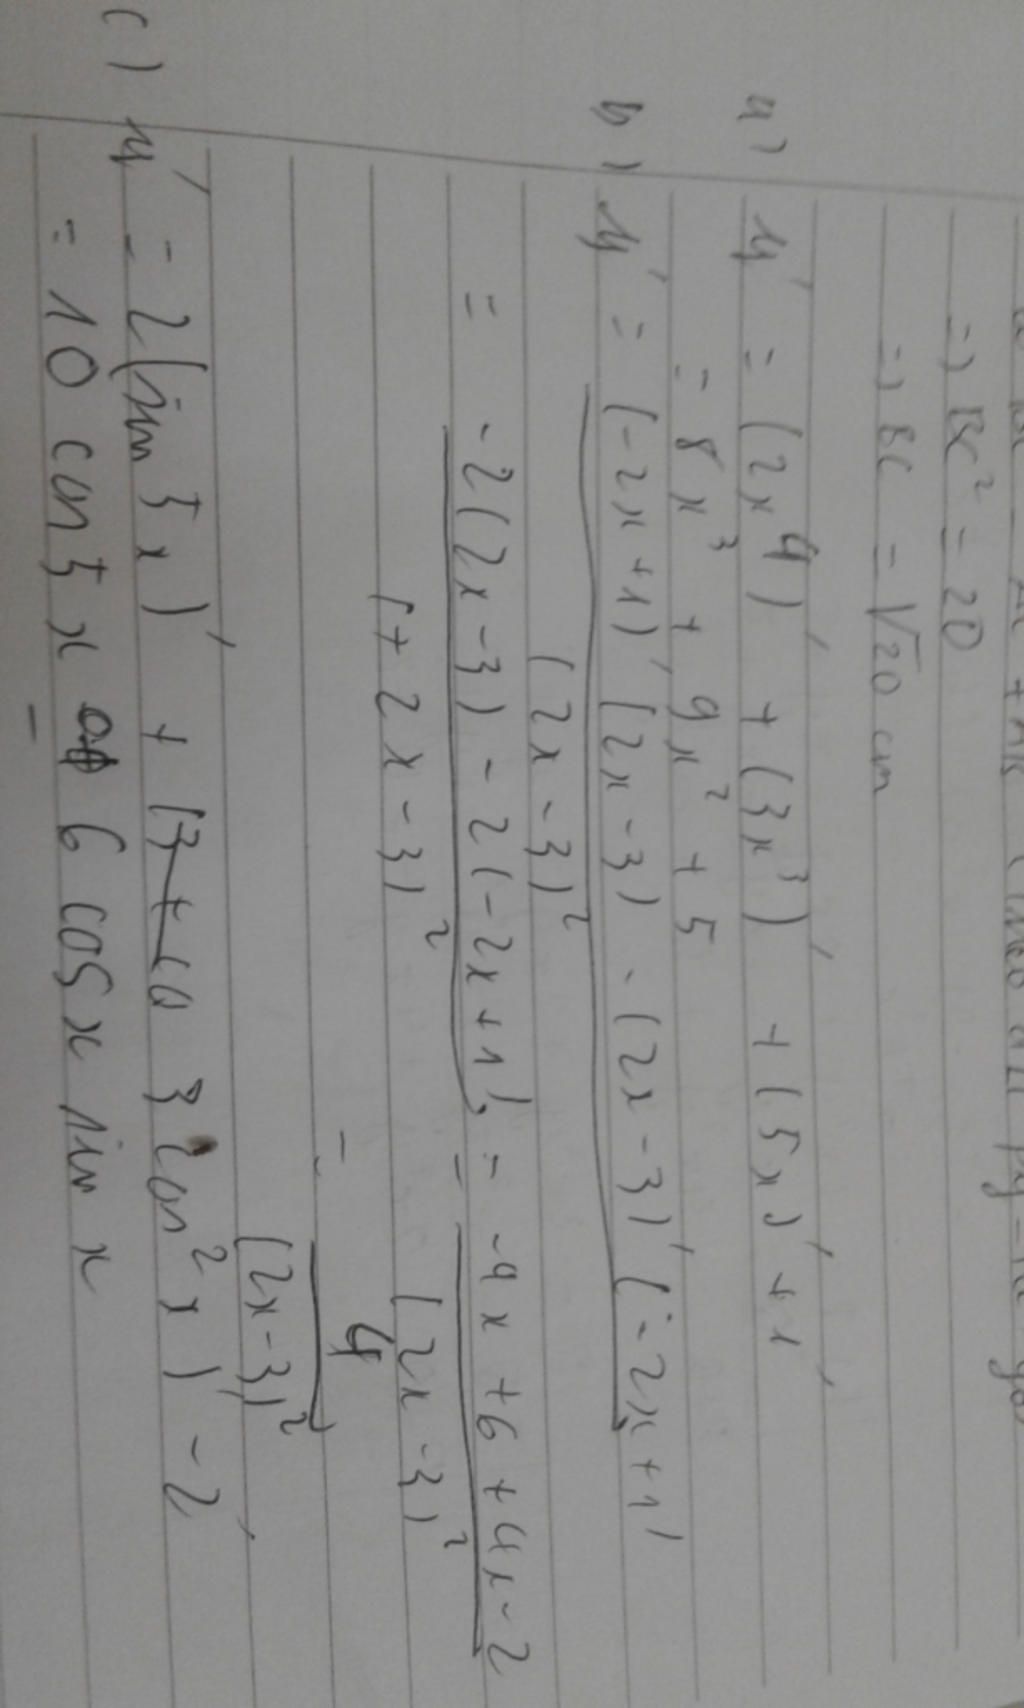 =) BC² = 20
=) BC = √20 cm
a) y' = (2x⁴)' + (3x³)' + (5x)' + 1'
= 8x³ + 9x² + 5
b) y' = (-2x+1)' (2x-3) - (2x-3)' (-2x+1)
(2x-3)²
= -2(2x-3) - 2(-2x+1) = -4x+6+4x-2
(+2x-3)² (2x-3)²
= 4
(2x-3)²
c) y' = 2(sin 5x)' + (3cos²x)' - 2'
= 10 cos 5x - 6 cos x sin x